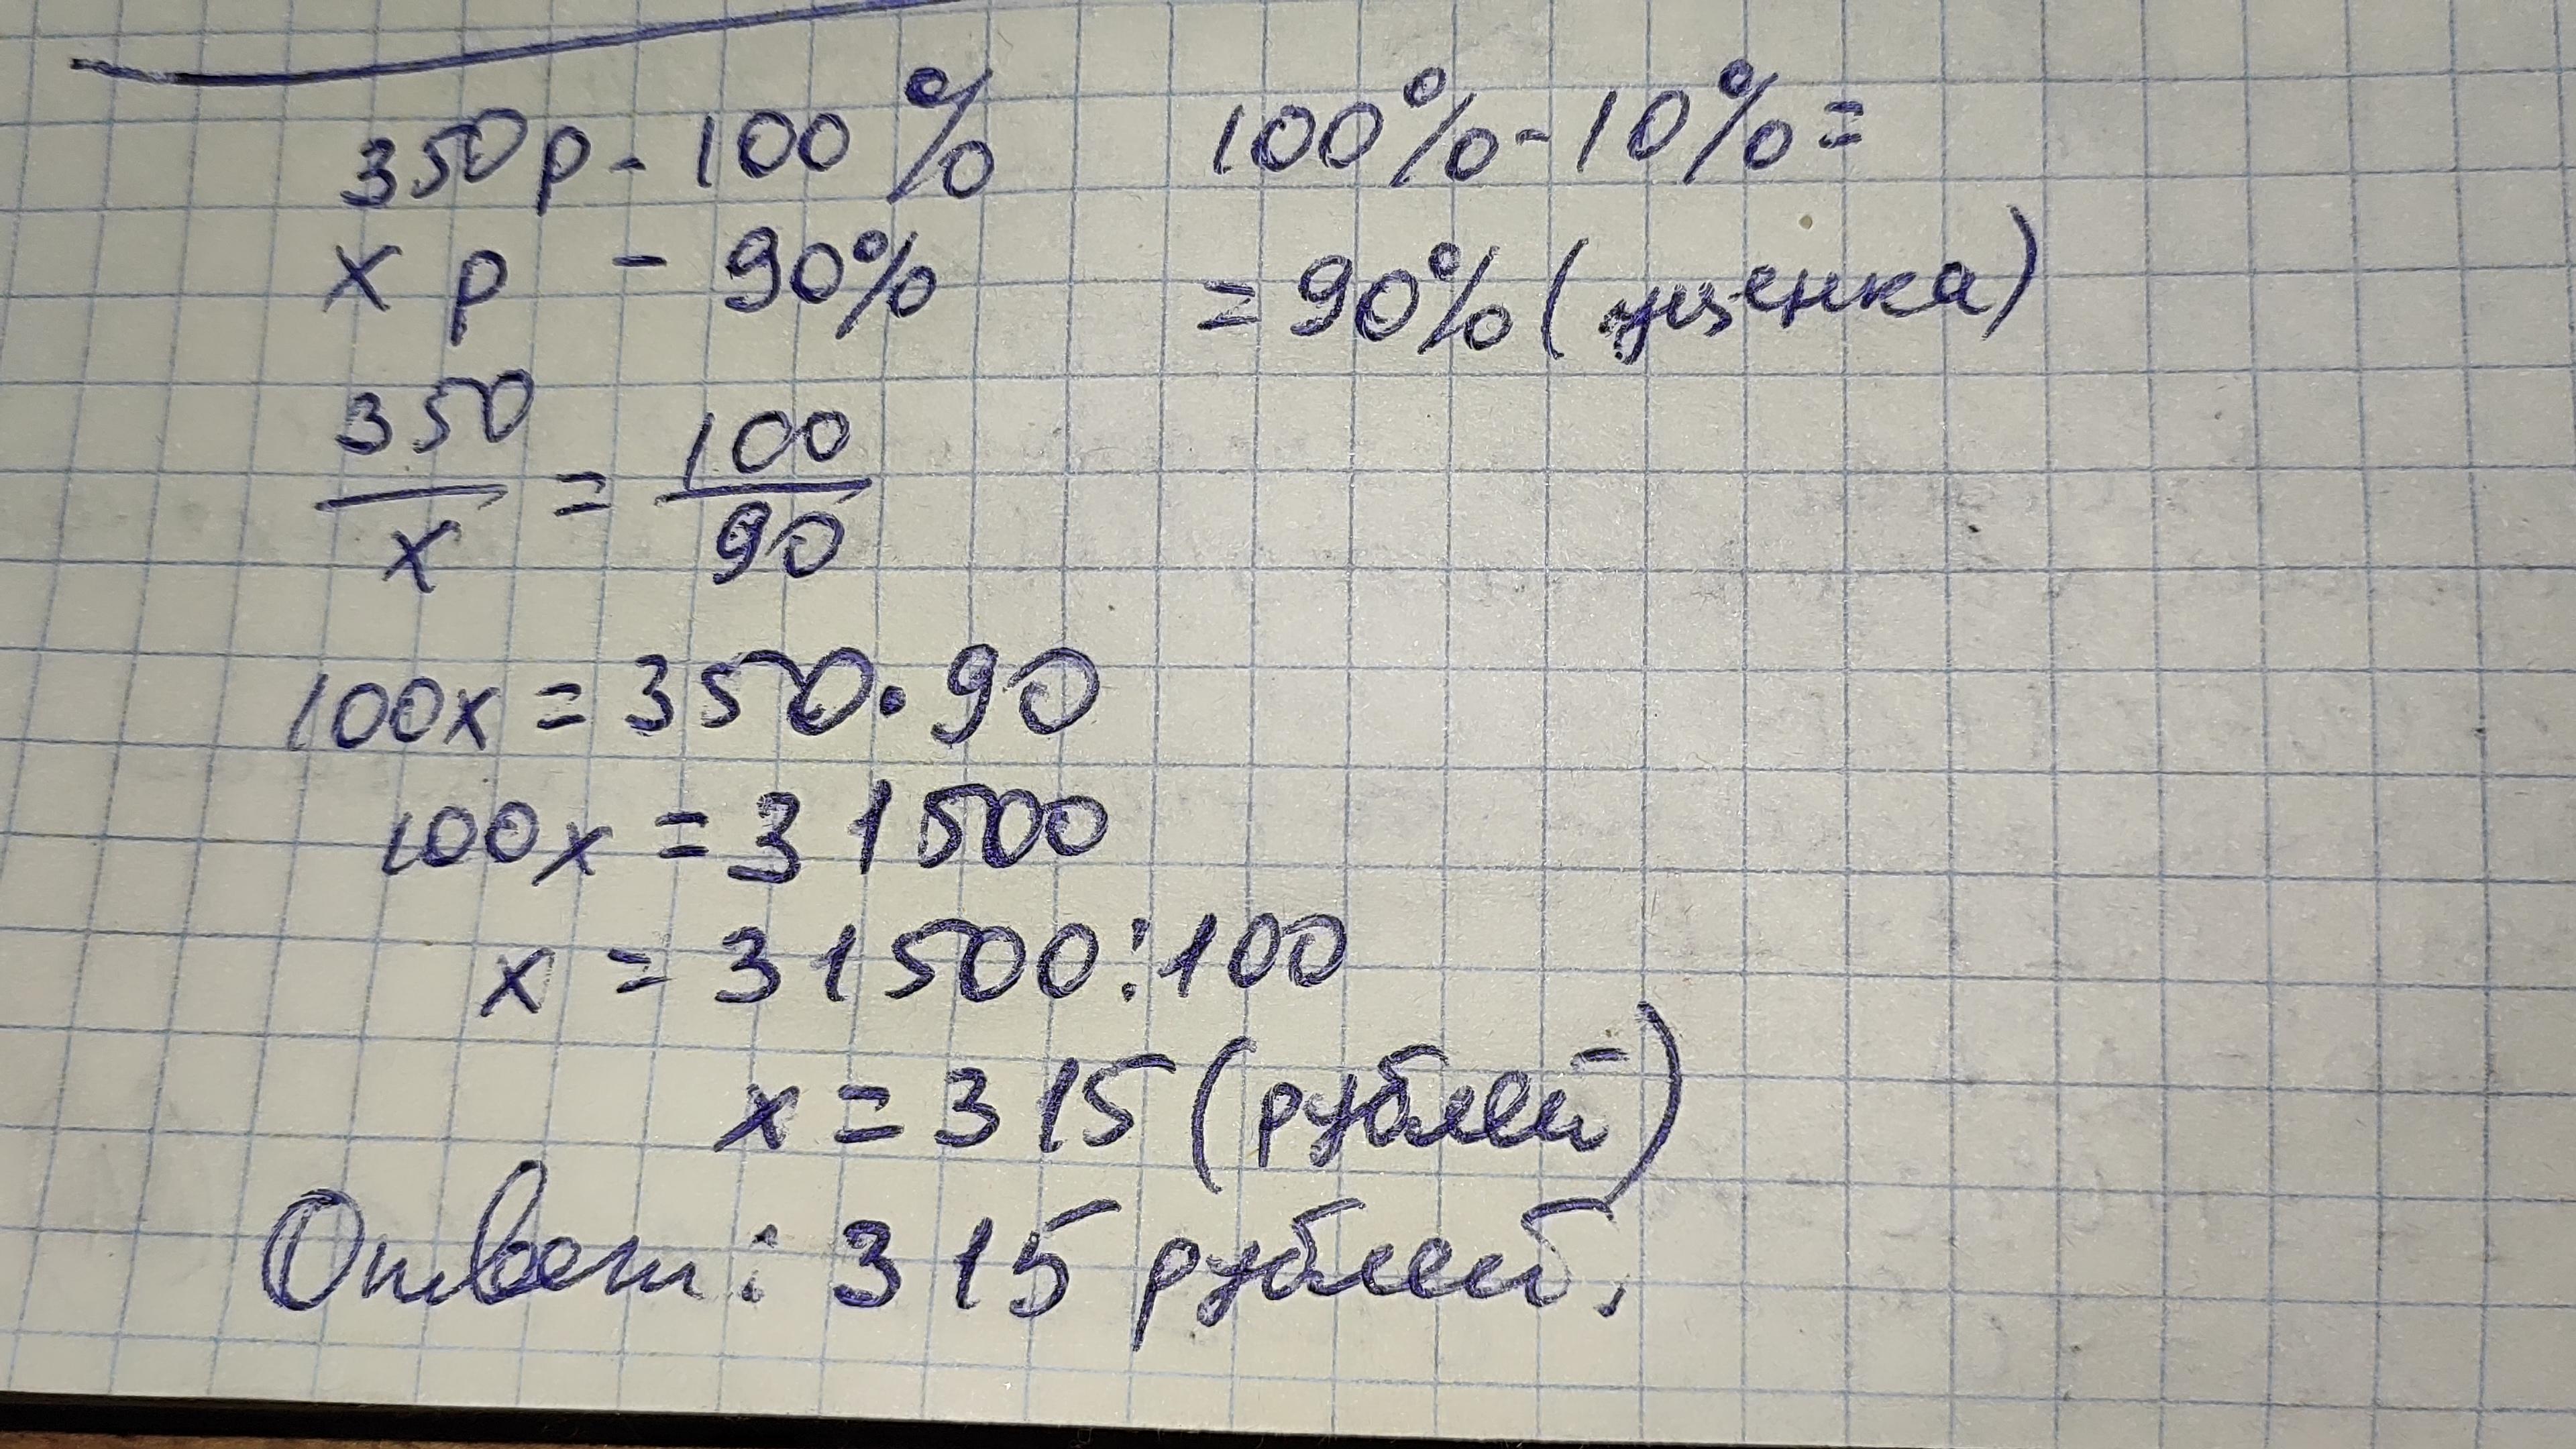 350р - 100% 100% - 10% =
х р - 90% = 90% (уценка)
350/х = 100/90
100х = 350 · 90
100х = 31500
х = 31500 : 100
х = 315 (рублей)
Ответ: 315 рублей.